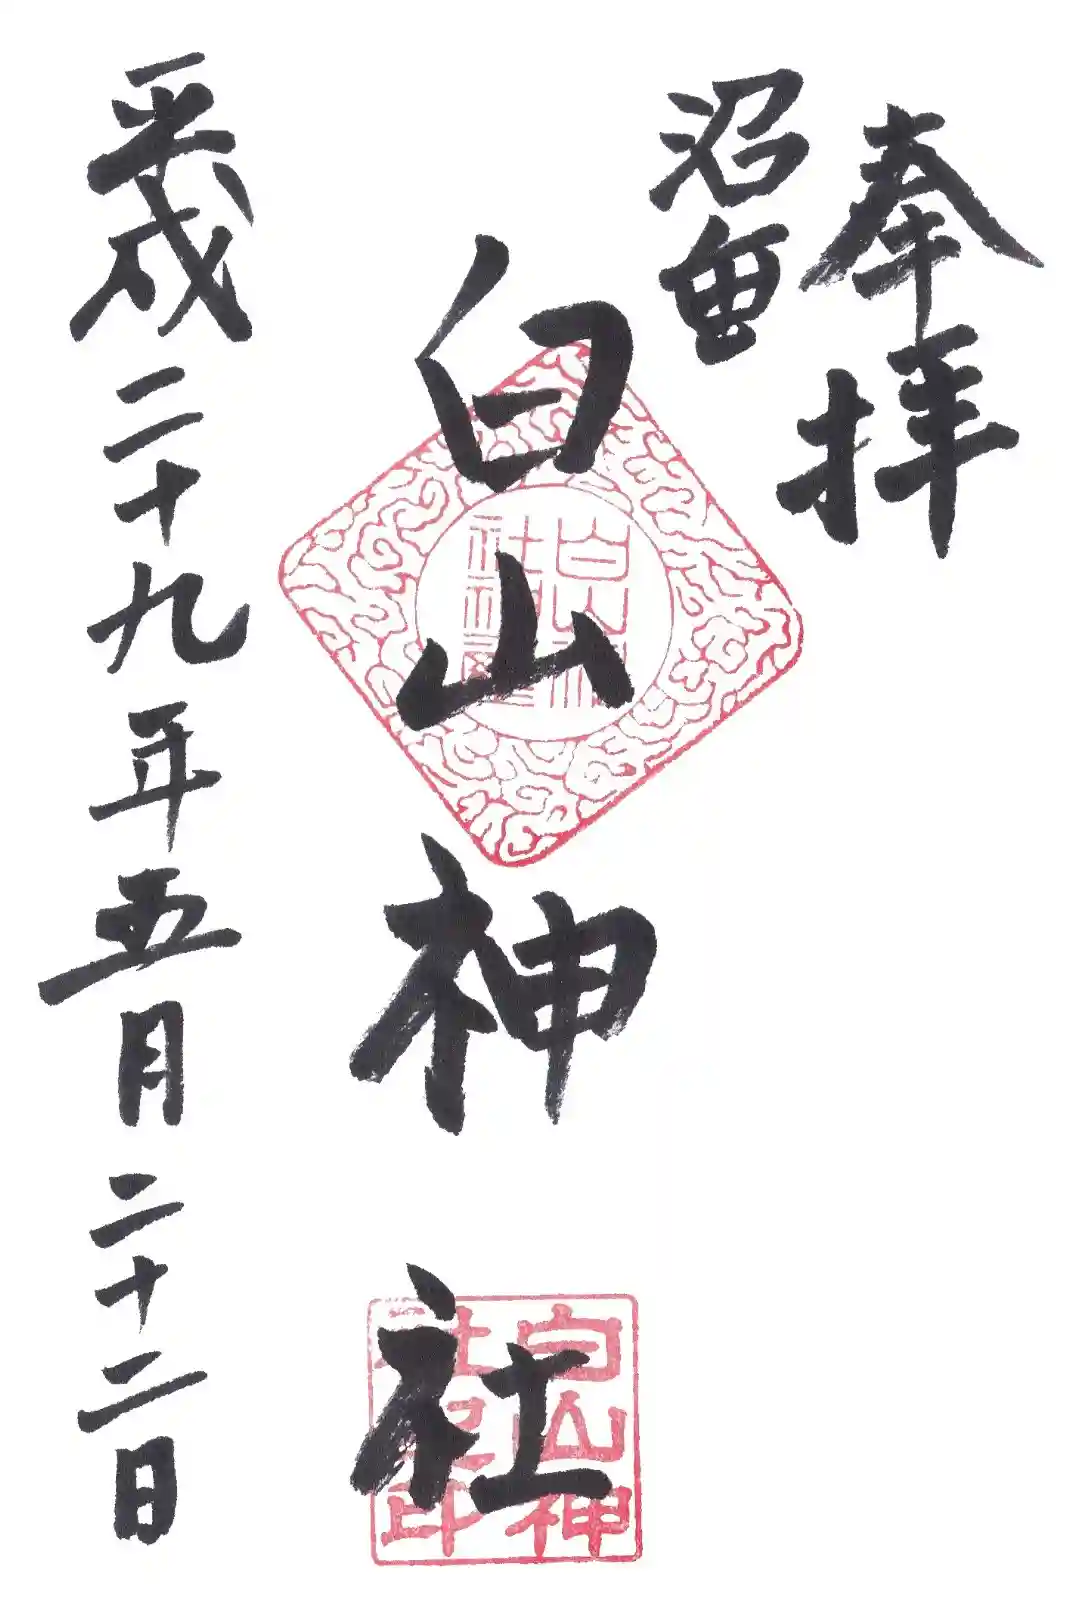 奉拝
沼垂
白山神社
平成二十九年五月二十二日
白山神
社之印